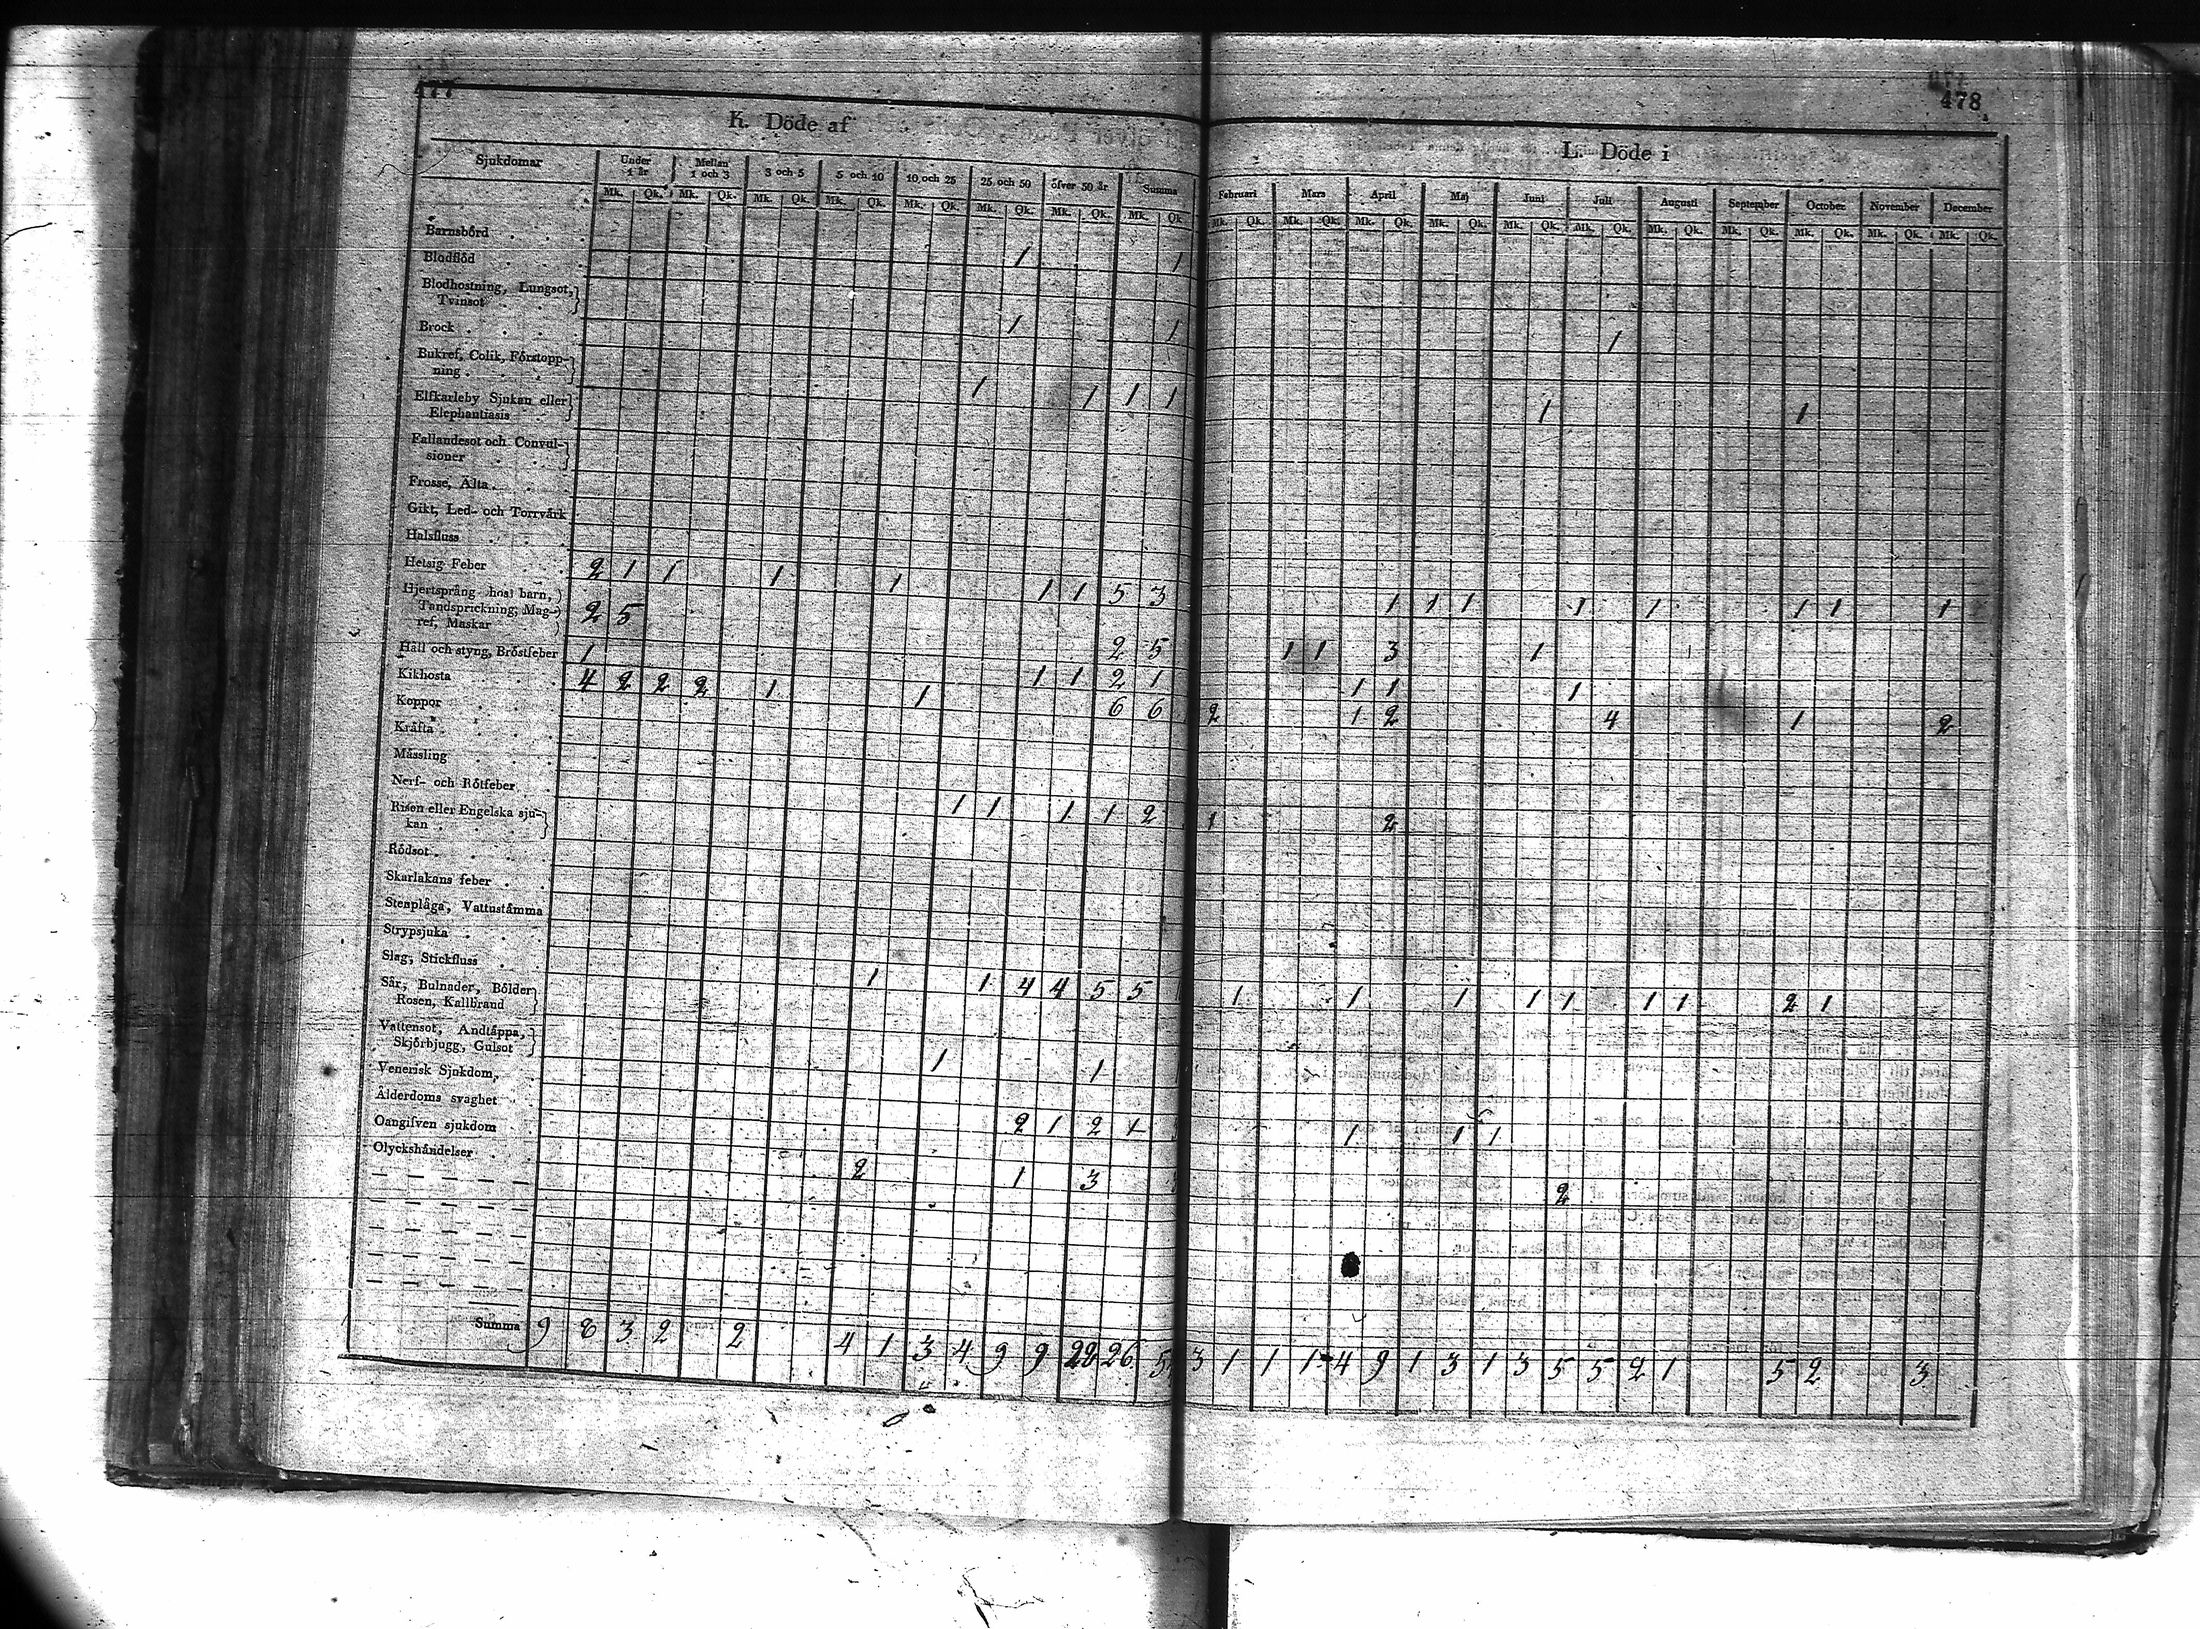 477
478
K. Döde af
L. Döde i
Sjukdomar Under 1 år Mellan 1 och 3 3 och 5 5 och 10 10 och 25 25 och 50 öfver 50 år Summa Februari Mars April Maj Juni Juli Augusti September October November December
Mk. Qk. Mk. Qk. Mk. Qk. Mk. Qk. Mk. Qk. Mk. Qk. Mk. Qk. Mk. Qk. Mk. Qk. Mk. Qk. Mk. Qk. Mk. Qk. Mk. Qk. Mk. Qk. Mk. Qk. Mk. Qk. Mk. Qk. Mk. Qk. Mk. Qk.
Barnsbörd
Blodflöd 1 1
Blodhostning, Lungsot,
Tvinsot
Brock 1 1 1
Bukref, Colik, Förstopp-
ning 1 1 1 1
Elfkarleby Sjukan eller
Elephantiasis 1 1
Fallandesot och Convul-
sioner
Frossa, Älta
Gikt, Led- och Torrvärk
Halsfluss
Hetsig Feber 2 1 1 1 1 1 1 5 3 1 1 1 1 1 1 1 1
Hjertsprång hos barn,
Tandsprickning, Mag-
ref, Maskar 2 5 2 5 1 1 3 1
Håll och styng, Bröstfeber 1 1 1 2 1 1 1 1
Kikhosta 4 2 2 2 1 1 6 6 2 1 2 4 1 2
Koppor
Kräfta
Mässling
Nerf- och Rötfeber 1 1 1 1 2 1 2
Risen eller Engelska sju-
kan
Rödsot
Skarlakans feber
Stenplåga, Vattustämma
Strypsjuka
Slag, Stickfluss 1 1 4 4 5 5 1 1 1 1 1 1 1 2 1
Sår, Bulnader, Bölder
Rosen, Kallbrand
Vattensot, Andtäppa,
Skjörbjugg, Gulsot 1 1
Venerisk Sjukdom,
Ålderdoms svaghet 2 1 2 1 1 1 1
Oangifven sjukdom
Olyckshändelser 2 1 3 2
Summa 9 8 3 2 2 4 1 3 4 9 9 22 26 5 3 1 1 1 4 9 1 3 1 3 5 5 2 1 5 2 3